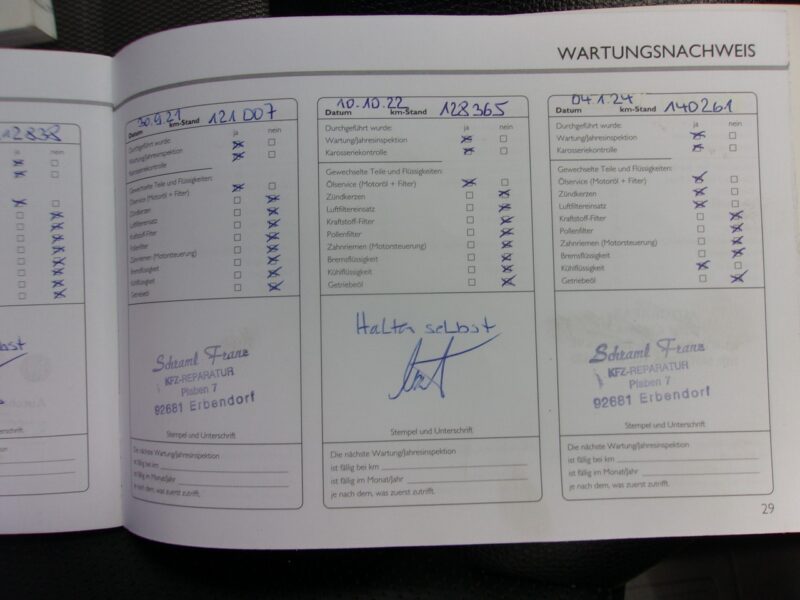 WARTUNGSNACHWEIS
12838
ja nein
bst
30.9.21 121 007
Datum km-Stand
Durchgeführt wurde: ja nein
Wartung/Jahresinspektion
Karosseriekontrolle
Gewechselte Teile und Flüssigkeiten:
Ölservice (Motoröl + Filter)
Zündkerzen
Luftfiltereinsatz
Kraftstoff-Filter
Pollenfilter
Zahnriemen (Motorsteuerung)
Bremsflüssigkeit
Kühlflüssigkeit
Getriebeöl
Schraml Franz
KFZ-REPARATUR
Plaben 7
92681 Erbendorf
Stempel und Unterschrift
Die nächste Wartung/Jahresinspektion
ist fällig bei km
ist fällig im Monat/Jahr
je nach dem, was zuerst zutrifft.
10.10.22 128365
Datum km-Stand
Durchgeführt wurde: ja nein
Wartung/Jahresinspektion
Karosseriekontrolle
Gewechselte Teile und Flüssigkeiten:
Ölservice (Motoröl + Filter)
Zündkerzen
Luftfiltereinsatz
Kraftstoff-Filter
Pollenfilter
Zahnriemen (Motorsteuerung)
Bremsflüssigkeit
Kühlflüssigkeit
Getriebeöl
Halter selbst
Stempel und Unterschrift
Die nächste Wartung/Jahresinspektion
ist fällig bei km
ist fällig im Monat/Jahr
je nach dem, was zuerst zutrifft.
04.1.24 140261
Datum km-Stand
Durchgeführt wurde: ja nein
Wartung/Jahresinspektion
Karosseriekontrolle
Gewechselte Teile und Flüssigkeiten:
Ölservice (Motoröl + Filter)
Zündkerzen
Luftfiltereinsatz
Kraftstoff-Filter
Pollenfilter
Zahnriemen (Motorsteuerung)
Bremsflüssigkeit
Kühlflüssigkeit
Getriebeöl
Schraml Franz
KFZ-REPARATUR
Plaben 7
92681 Erbendorf
Stempel und Unterschrift
Die nächste Wartung/Jahresinspektion
ist fällig bei km
ist fällig im Monat/Jahr
je nach dem, was zuerst zutrifft.
29